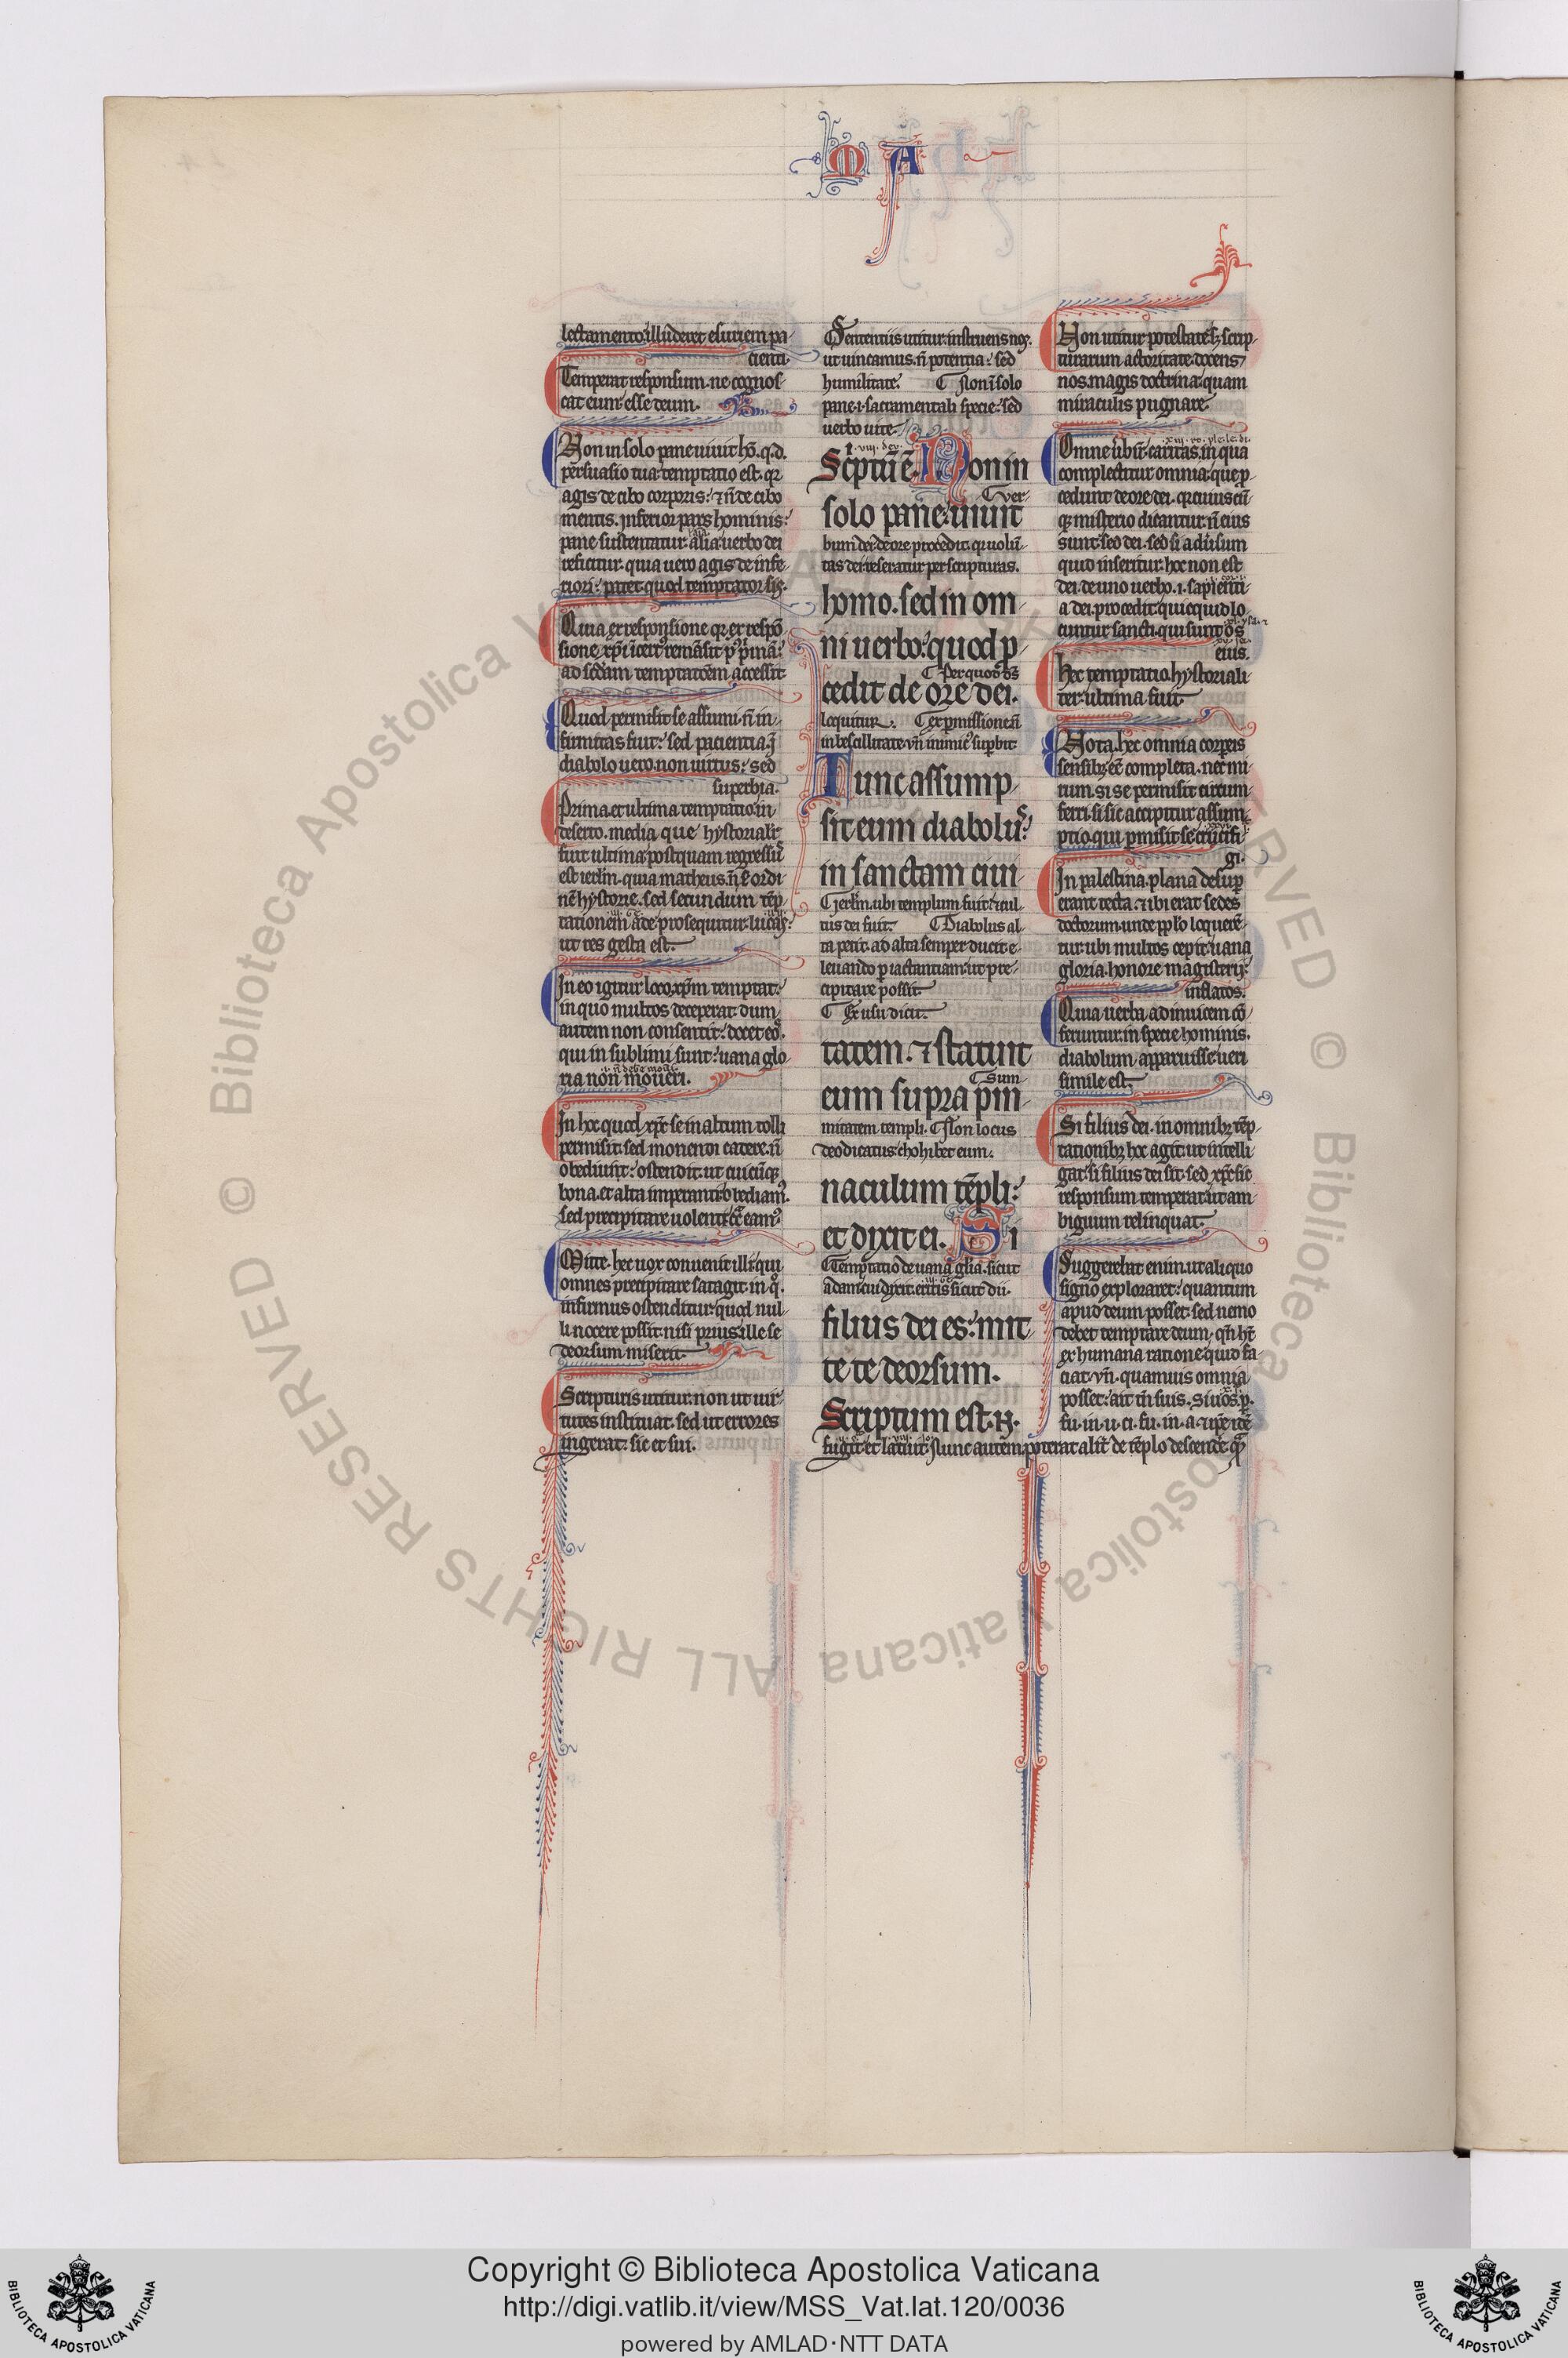 M A
lectamento. illuderet esuriem pa-
cienti.
Temperat responsum. ne cognos-
cat eum esse deum.
Non in solo pane uiuit hō. q.d.
persuasio tua temptatio est. qr
agis de cibo corporis: ⁊ n̄ de cibo
mentis. inferior pars hominis:
pane sustentatur. alia uerbo dei
reficitur. quia uero agis de infe-
riori: patet quod temptator sis.
Quia ex responsione
ad scd̄am temptatōem accessit
Quod permisit se assumi. n̄ in-
firmitas fuit: sed paciencia. J
diabolo uero. non uirtus: sed
superbia.
Prima et ultima temptatio. in
deserto. media que hystorialit̄
fuit ultima. postquam regressus
est ierlm̄. quia matheus. n̄ ē ordi-
nē hystorie. sed secundum tēp-
tationem ade prosequitur. lucas:
ut res gesta est.
In eo igitur loco xp̄m temptat:
in quo multos deceperat. dum
autem non consentit: docet eos.
qui in sublimi sunt: uana glo-
ria non moueri.
In hoc quod xp̄c se in altum tolli
permisit. sed monenti cadere. n̄
obediunt: ostendit. ut cuicūq;
bona. et alta imperanti obediam9.
sed precipitare uolenti
Mitte. hec uox conuenit illi. qui
omnes precipitare satagit. in q°.
infirmus ostenditur. quod nul-
li nocere possit. nisi prius ille se
deorsum miserit.
Scripturis utitur. non ut uir-
tutes instituat. sed ut errores
ingerat. sic et sui.
Sententiis utitur. instruens nos.
ut uincamus. n̄ potentia: sed
humilitate. Non ī solo
pane .i. sacramentali specie: sed
uerbo uite.
.viii. dev.
Scptū ē. Non in
Ver-
solo pane uiuit
bum dei de ore procedit. qr uolū-
tas dei reseratur per scripturas.
homo. sed in om-
ni uerbo: quod p̄-
Per quod d̄s
cedit de ore dei.
loquitur. ex permissione. n̄
inbecillitate. vn̄ inimic9 supbit
Tunc assump-
sit eum diabolus:
in sanctam ciui-
ierlm̄. ubi templum fuit. ⁊ cul-
tus dei fuit. Diabolus al-
ta petit. ad alta semper ducit. e-
leuando p iactantiam: ut pre-
cipitare possit.
Ex usu dicit.
tatem. ⁊ statuit
Sum-
eum supra pin-
mitatem templi. Non locus
deo dicatus. chohibet eum.
naculum tēpli:
et dixit ei. Si
Temptatio de uana glīa. sicut
adam cui dixit. eritis sicut dii.
filius dei es: mit-
te te deorsum.
Scriptum est. n.
Non utitur potestate. s; scrip-
turarum actoritate. docens
nos. magis doctrina: quam
miraculis pugnare.
Omne ūbū: caritas. in qua
complectitur omnia: que p̄-
cedunt de ore dei. qr cuiuscū-
q; misterio dicantur: n̄ eius
sunt: seo dei. sed si aduersum
quid inseritur. hoc non est
dei. de uno uerbo .i. sapienti-
a dei. procedit: quicquid lo-
cuntur sancti. qui sunt os
eius.
Hec temptatio. hystoriali-
ter. ultima fuit
Nota. hec omnia corporeis
sensib; eē completa. nec mi-
rum. si se permisit circum-
ferri. si sic accipitur assum-
ptio. qui permisit se crucifi-
gi.
In palestina. plana desup
erant tecta. ⁊ ibi erat sedes
doctorum. unde pplo loquerē-
tur. ubi multos cepit. uana
gloria. honore magisterii:
inflatos.
Quia uerba adinuicem cō-
feruntur: in specie hominis.
diabolum apparuisse ueri
simile est.
Si filius dei. in omnib; tēp-
tationib; hoc agit. ut intelli-
gat. si filius dei sit. sed xp̄c sic
responsum temperat: ut am-
biguum relinquat.
Suggerebat enim. ut aliquo
signo exploraret: quantum
apud deum posset. sed nemo
debet temptare deum. qn̄ h̄t
ex humana ratione quid fa-
ciat. vn̄. quamuis omnia
posset: ait tn̄ suis.
fugit et latuit. Nunc autem poterat alit̄ de tēplo descend̄e.
Copyright © Biblioteca Apostolica Vaticana
http://digi.vatlib.it/view/MSS_Vat.lat.120/0036
powered by AMLAD·NTT DATA
© Biblioteca Apostolica Vaticana ALL RIGHTS RESERVED
BIBLIOTECA APOSTOLICA VATICANA
BIBLIOTECA APOSTOLICA VATICANA